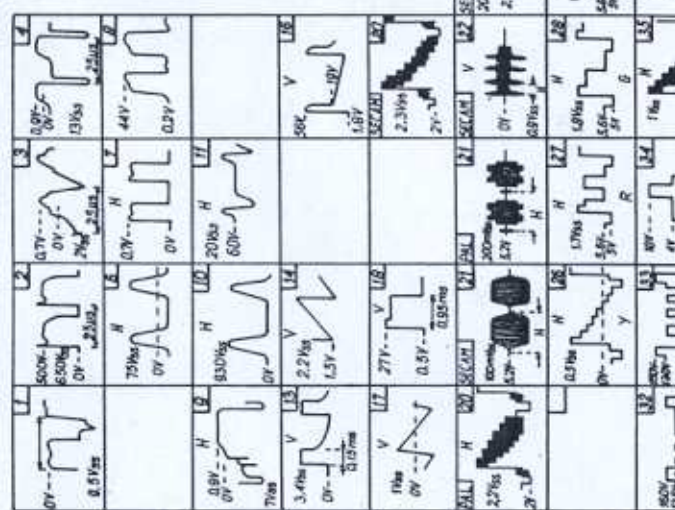 1
0V
0,5Vss
2
500V
650Vss
0V
25µs
3
0,7V
0V
2Vss
25µs
4
0,9V
0V
13Vss
25µs
6
H
75Vss
0V
7
H
0,7V
0V
8
H
44V
0,2V
9
H
0,9V
0V
7Vss
10
H
930Vss
0V
11
H
20Vss
60V
13
V
3,4Vss
0V
0,15ms
14
V
2,2Vss
1,5V
16
V
56V
19V
1,8V
17
V
1Vss
0V
18
V
27V
0,5V
0,95ms
SECAM
20
2,3Vss
2V
PAL
20
H
2,2Vss
2V
SECAM
21
5,2V
H
PAL
21
5,2V
H
SECAM
22
V
0V
0,8Vss
26
H
0,5Vss
0V
Y
27
H
1,7Vss
5,6V
3V
R
28
H
1,8Vss
5,6V
3V
G
32
33
34
10V
35
1Vss